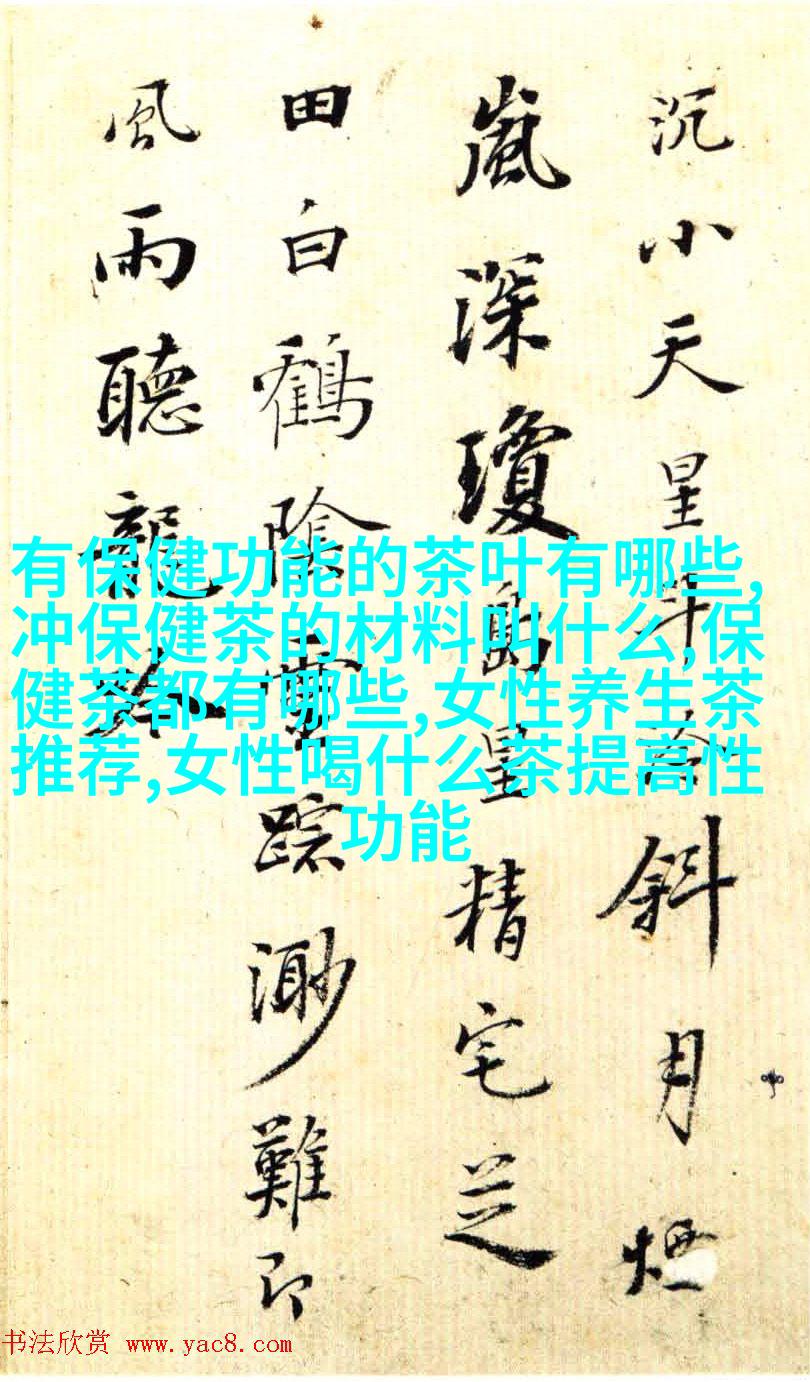 沉小天星斗冷斜月煙
嵐深瓊島皇精宅芝
田白鶴陰踪渺難即
風雨聽龍吟
有保健功能的茶叶有哪些,
冲保健茶的材料叫什么,保
健茶都有哪些,女性养生茶
推荐,女性喝什么茶提高性
功能
书法欣赏 www.yac8.com